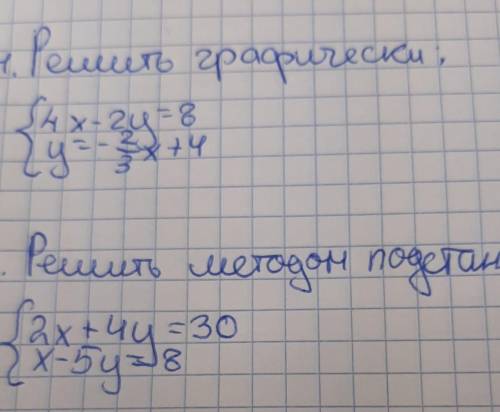 1. Решить графически:
4x-2y=8
y=-2/3x+4
. Решить методом
2x+4y=30
x-5y=8